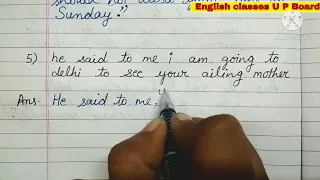 English classes U P Board
Sunday."
5) he said to me i am going to
delhi to see your ailing mother
Ans. He said to me, "